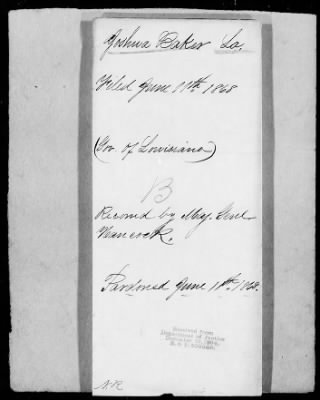 Joshua Baker La.
Filed June 11th 1868
(Gov. of Louisiana)
B
Recom'd by Maj. Genl
Hancock.
Pardoned June 11th, 1868.
Received from
Department of Justice